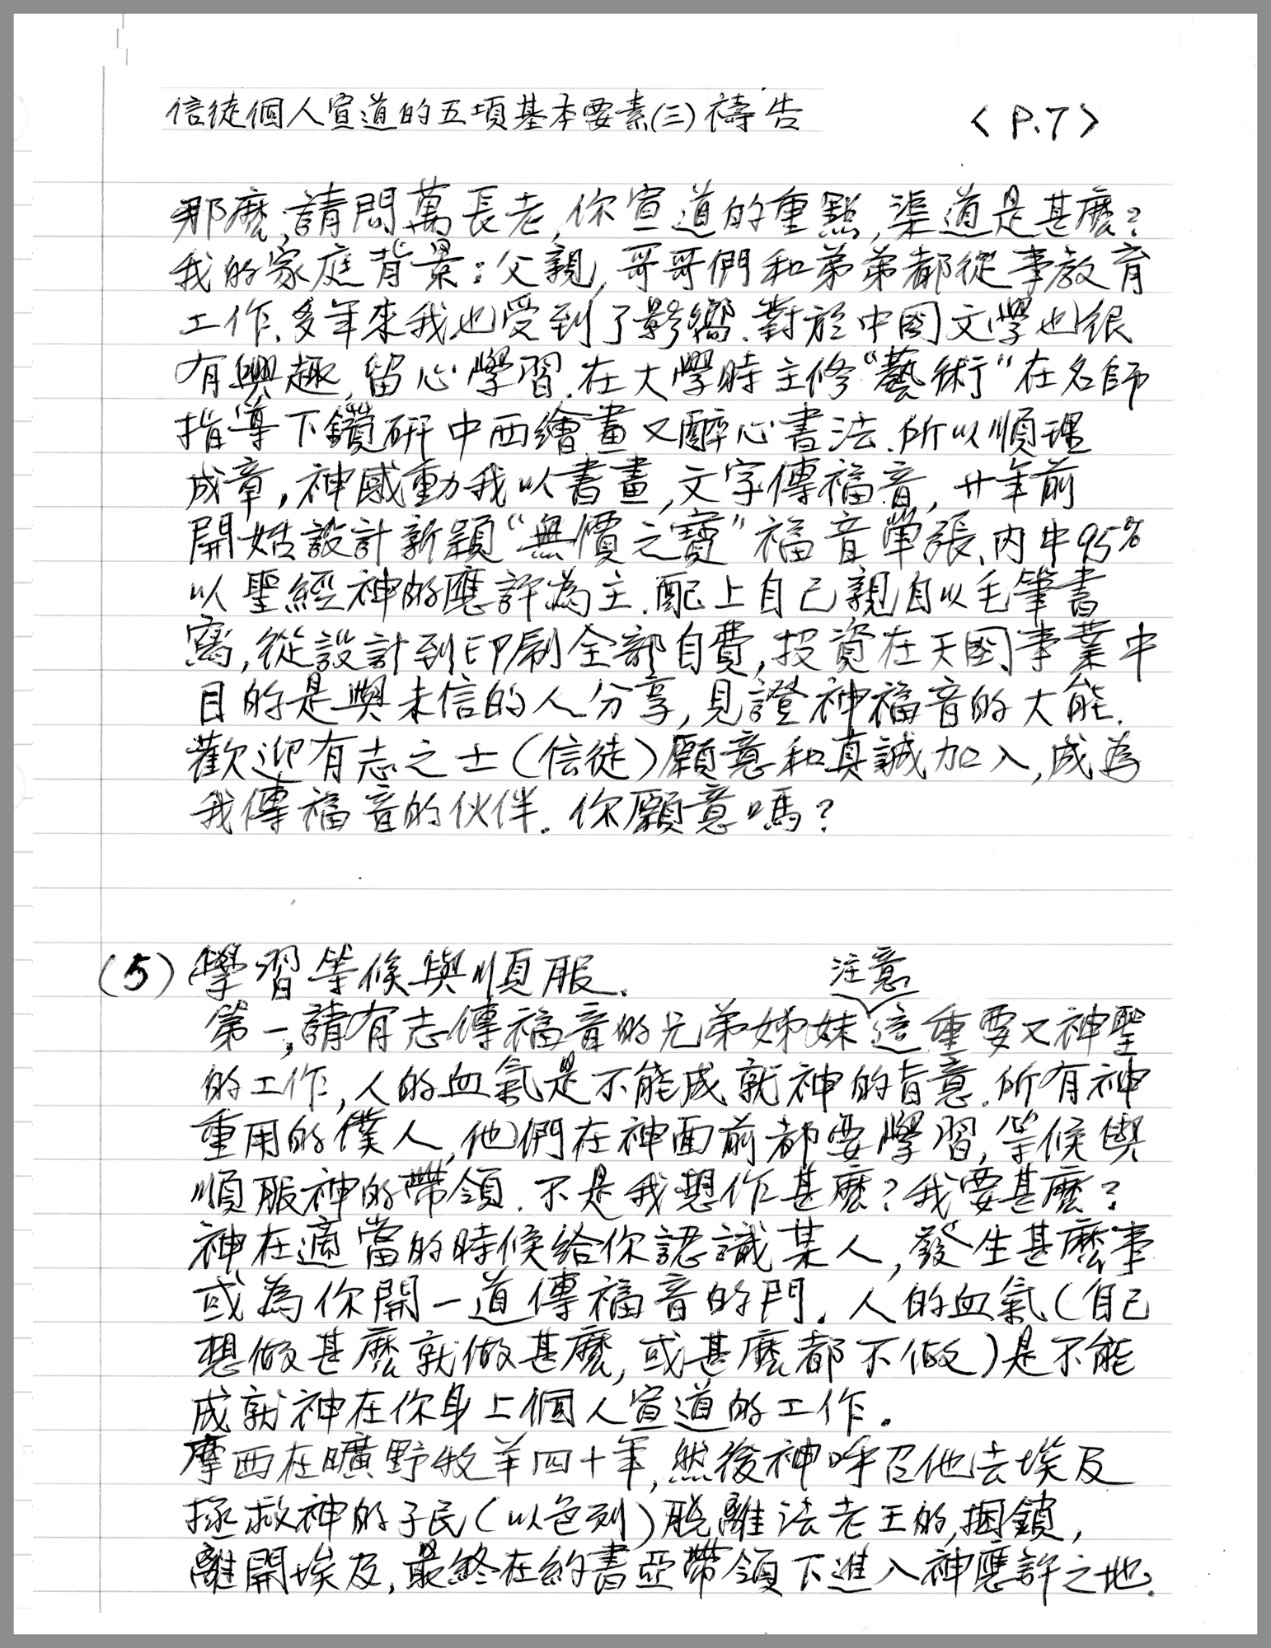 信徒個人宣道的五項基本要素(三)禱告 〈P.7〉
那麼,請問萬長老,你宣道的重點,渠道是甚麼?
我的家庭背景:父親,哥哥們和弟弟都從事教育
工作、多年來我也受到了影響.對於中國文學也很
有興趣,留心學習.在大學時主修“藝術”在名師
指導下鑽研中西繪畫又醉心書法.所以順理
成章,神感動我以書畫,文字傳福音,廿年前
開始設計新穎“無價之寶”福音單張、內中95%
以聖經神的應許為主.配上自己親自以毛筆書
寫,從設計到印刷全部自費,投資在天國事業中
目的是與未信的人分享,見證神福音的大能.
歡迎有志之士(信徒)願意和真誠加入,成為
我傳福音的伙伴.你願意嗎?
(5)學習等候與順服.
注意
第一,請有志傳福音的兄弟姊妹這重要又神聖
的工作,人的血氣是不能成就神的旨意.所有神
重用的僕人,他們在神面前都要學習,等候與
順服神的帶領.不是我想作甚麼?我要甚麼?
神在適當的時候給你認識某人,發生甚麼事
或為你開一道傳福音的門.人的血氣(自己
想做甚麼就做甚麼,或甚麼都不做)是不能
成就神在你身上個人宣道的工作。
摩西在曠野牧羊四十年,然後神呼召他去埃及
拯救神的子民(以色列)脫離法老王的捆鎖,
離開埃及,最終在約書亞帶領下進入神應許之地.